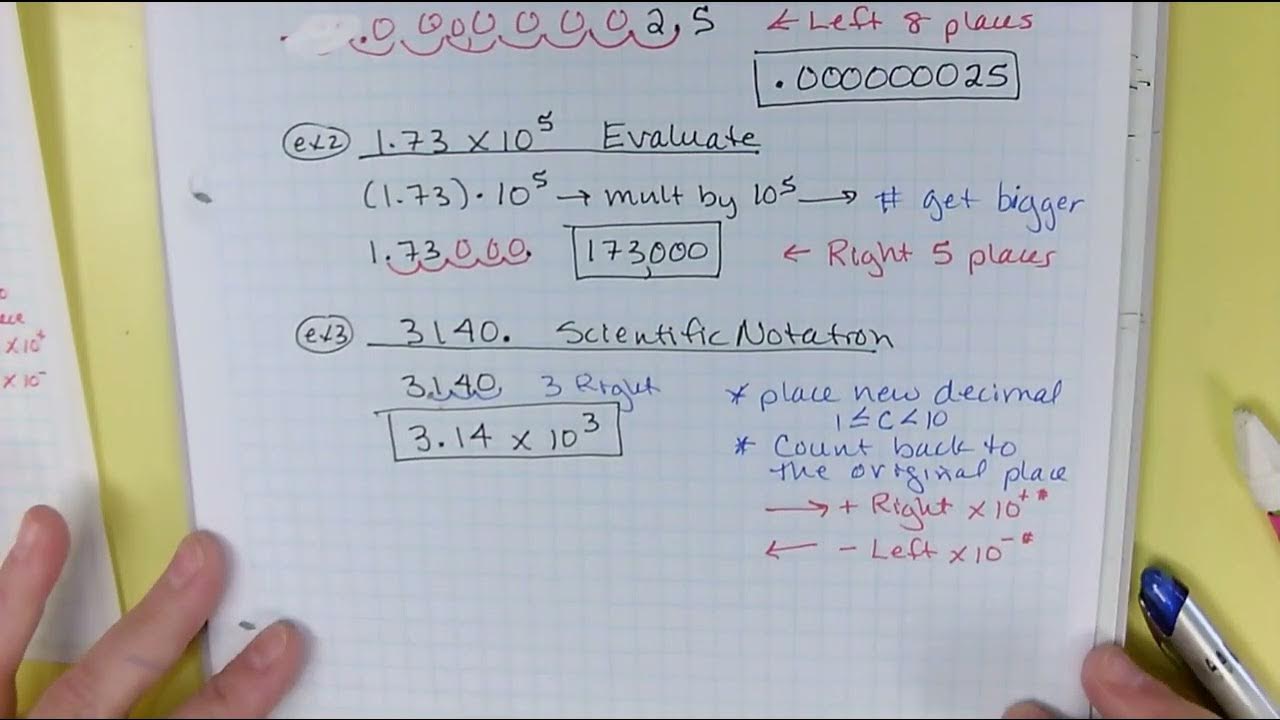 .0 0 0 0 0 0 0 2.5 ← Left 8 places
.000000025
ex2 1.73 x 10⁵ Evaluate
(1.73)·10⁵ → mult by 10⁵ → # get bigger
1.73000. 173,000 ← Right 5 places
ex3 3140. Scientific Notation
3.140 3 Right
* place new decimal
1 ≤ C < 10
3.14 x 10³
* Count back to
the original place
→ + Right x 10⁺#
← - Left x 10⁻#
x 10⁺
x 10⁻